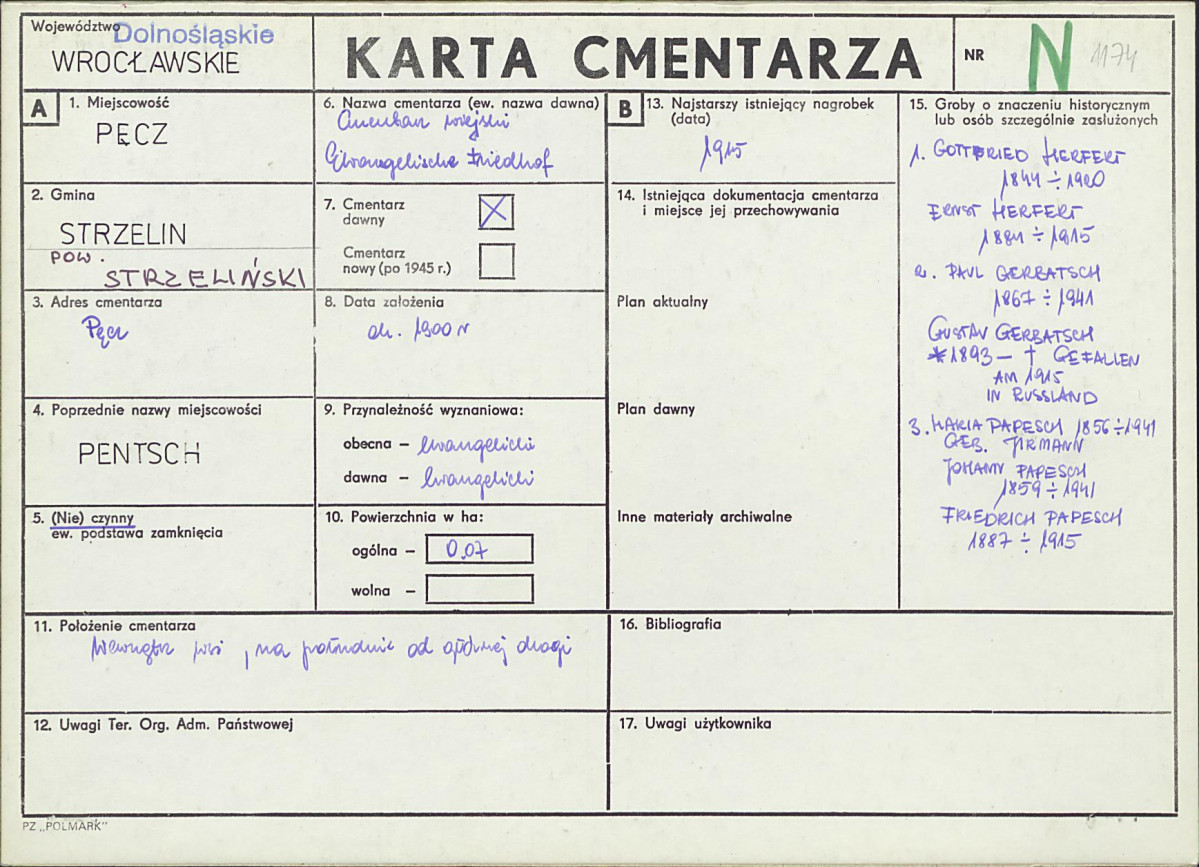 Województwo Dolnośląskie
WROCŁAWSKIE
KARTA CMENTARZA
NR N 1174
A 1. Miejscowość
PĘCZ
2. Gmina
STRZELIN
POW.
STRZELIŃSKI
3. Adres cmentarza
Pęcz
4. Poprzednie nazwy miejscowości
PENTSCH
5. (Nie) czynny
ew. podstawa zamknięcia
6. Nazwa cmentarza (ew. nazwa dawna)
Cmentarz wiejski
Evangelische Friedhof
7. Cmentarz
dawny
Cmentarz
nowy (po 1945 r.)
8. Data założenia
ok. 1900 r
9. Przynależność wyznaniowa:
obecna – ewangelicki
dawna – ewangelicki
10. Powierzchnia w ha:
ogólna – 0.07
wolna –
11. Położenie cmentarza
Wewnątrz wsi, na południe od głównej drogi
12. Uwagi Ter. Org. Adm. Państwowej
B 13. Najstarszy istniejący nagrobek
(data)
1915
14. Istniejąca dokumentacja cmentarza
i miejsce jej przechowywania
Plan aktualny
Plan dawny
Inne materiały archiwalne
15. Groby o znaczeniu historycznym
lub osób szczególnie zasłużonych
1. GOTTFRIED HERFERT
1844 ÷ 1920
ERNST HERFERT
1881 ÷ 1915
2. PAUL GERBATSCH
1867 ÷ 1941
GUSTAV GERBATSCH
*1893 – † GEFALLEN
AM 1915
IN RUSSLAND
3. MARIA PAPESCH 1856÷1941
GEB. JIRMANN
JOHANN PAPESCH
1859 ÷ 1941
FRIEDRICH PAPESCH
1887 ÷ 1915
16. Bibliografia
17. Uwagi użytkownika
PZ „POLMARK"